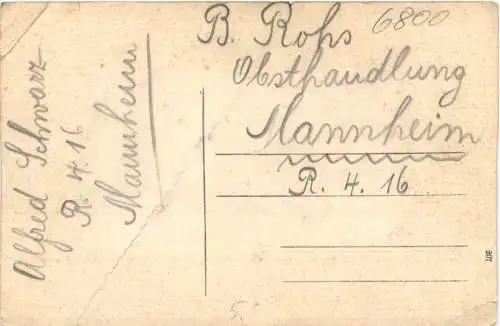 Alfred Schwarz
R. 4. 16
Mannheim
6800
B. Rohs
Obsthandlung
Mannheim
R. 4. 16
5.